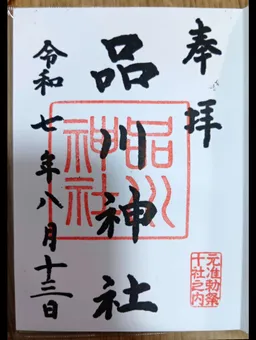 奉拝
品川神社
令和七年八月十三日
品川神社
元准勅祭
十社之内